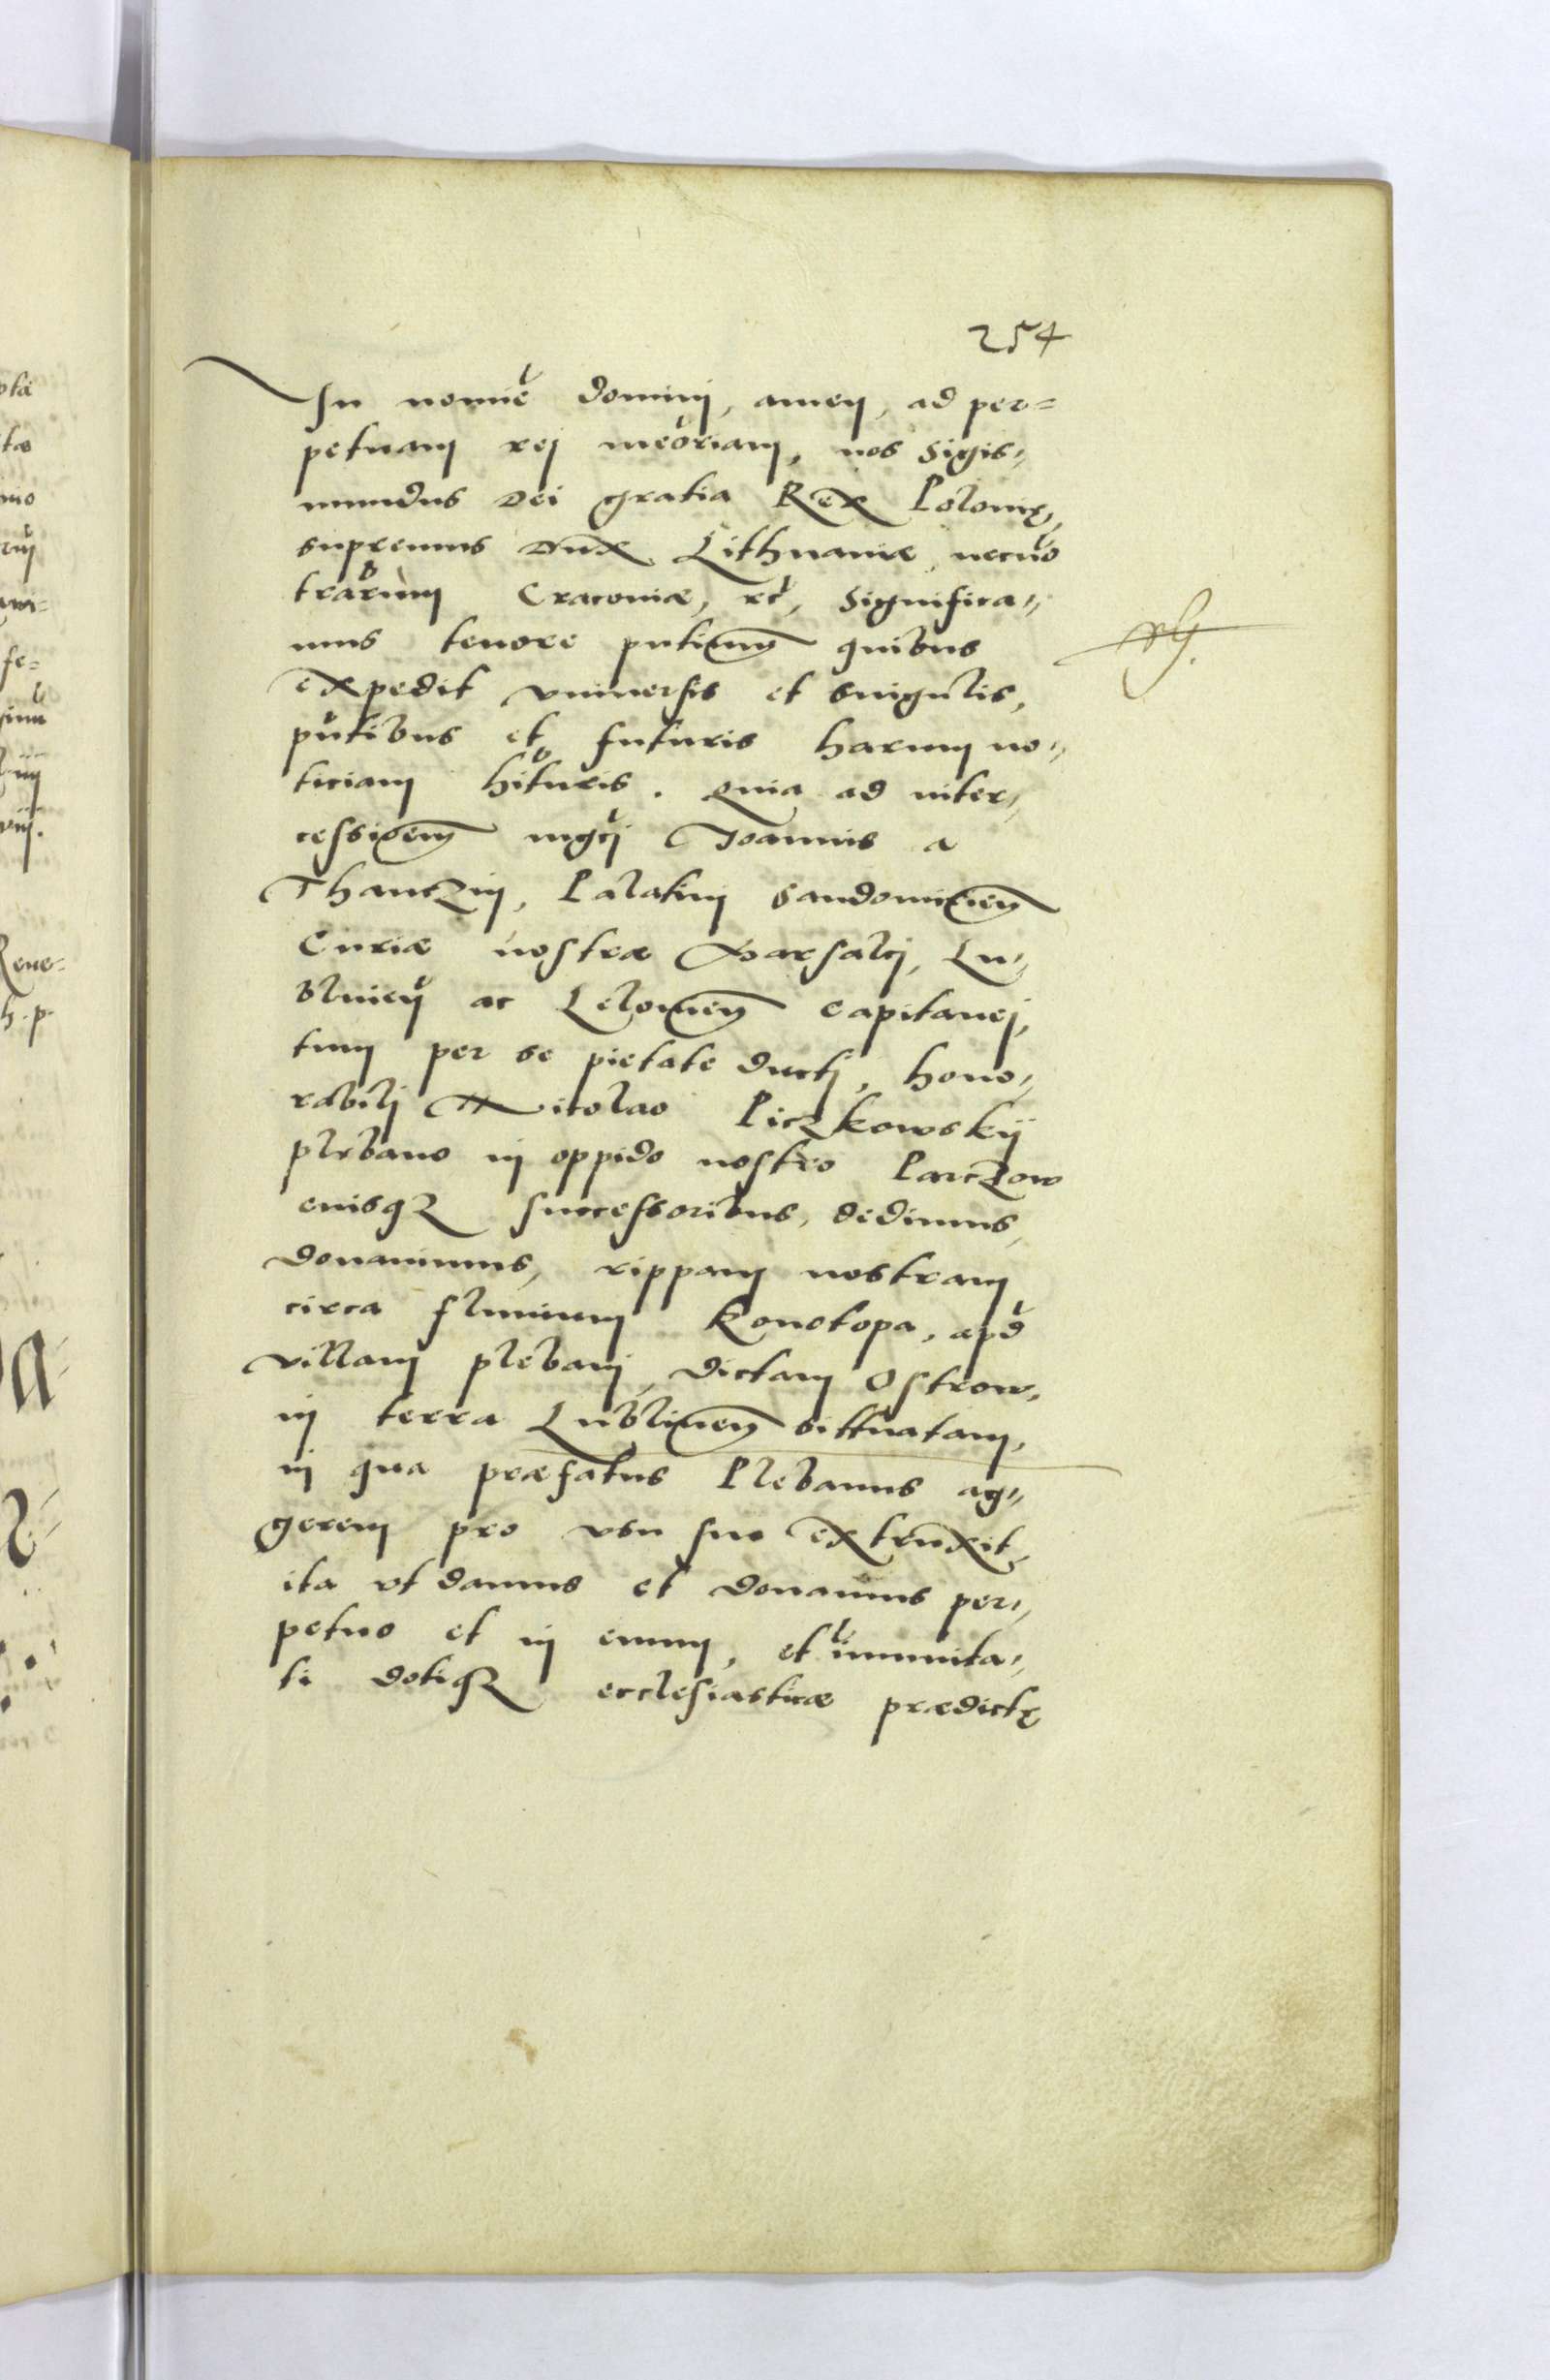 254
In nomiē domini, amen, ad per=
petuam rei meōriam, nos Sigis=
mundus Dei gratia Rex Polonię,
supremus Dux Lithuaniæ, necnō
trārum Cracoviæ, etc̄, Significa=
mus tenore pn̄tium quibus
expedit vniuersis et singulis,
pn̄tibus et futuris harum no=
ticiam hitūris. Quia ad inter=
cessionem mgci Joannis a
Thanczin, Palatini Sandomirien̄
Curiæ nostræ Marsalci, Lu=
blinen̄ ac Lelovien̄ Capitanei,
tum per se pietate ducti, hono=
rabili Nicolao Piczkowskÿ
plebano in oppido nostro Parczow
euisqȝ successoribus, dedimus,
donauimus, rippam nostram
circa fluuium Konotopa, apd̄
villam plebani, dictam Ostrow,
in terra Lublinen̄ sittuatam,
in qua præfatus Plebanus ag=
gerem pro vsu suo extruxit,
ita vt damus et donamus per=
petuo et in euum, et im̄unita=
ti dotiqȝ ecclesiasticæ prædictę